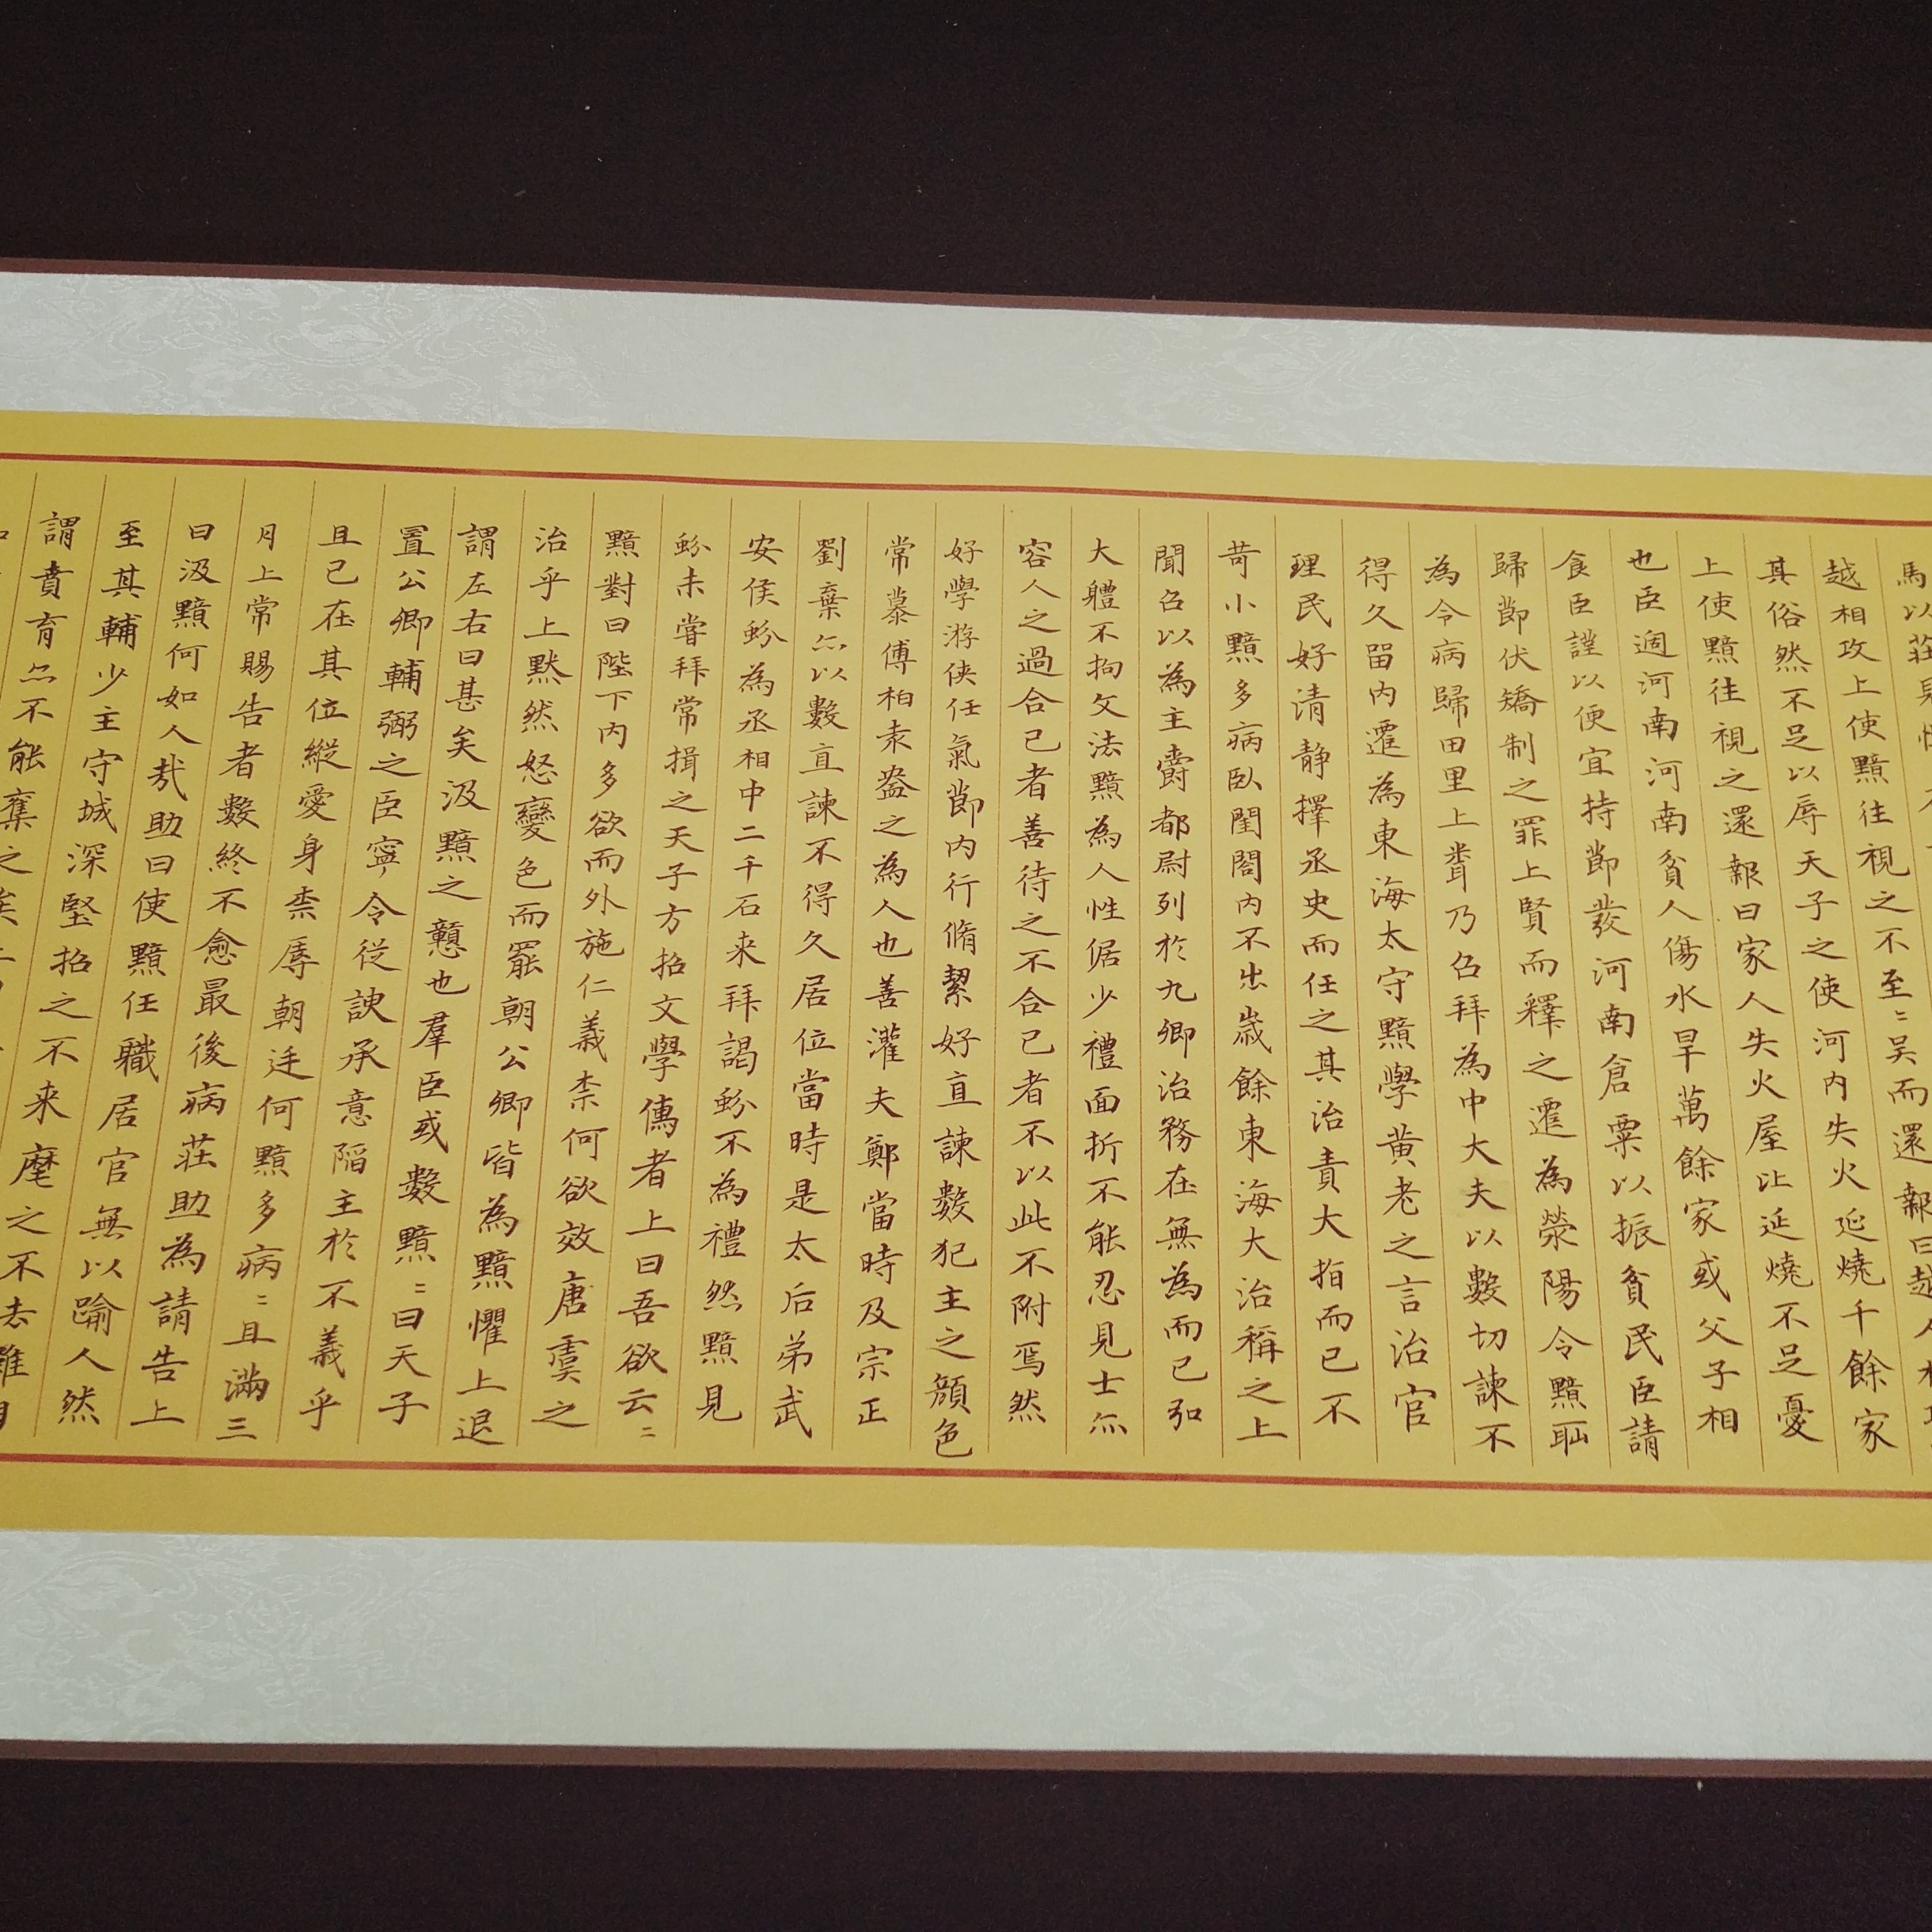 馬以莊見憚
越相攻上使黯往視之不至〻吳而還報曰越人相攻
其俗然不足以辱天子之使河内失火延燒千餘家
上使黯往視之還報曰家人失火屋比延燒不足憂
也臣過河南河南貧人傷水旱萬餘家或父子相
食臣謹以便宜持節發河南倉粟以振貧民臣請
歸節伏矯制之罪上賢而釋之遷為滎陽令黯恥
為令病歸田里上聞乃召拜為中大夫以數切諫不
得久留内遷為東海太守黯學黄老之言治官
理民好清静擇丞史而任之其治責大指而已不
苛小黯多病臥閨閤内不出歲餘東海大治稱之上
聞召以為主爵都尉列於九卿治務在無為而已弘
大軆不拘文法黯為人性倨少禮面折不能忍見士亦
容人之過合己者善待之不合己者不以此不附焉然
好學游俠任氣節内行脩絜好直諫數犯主之顔色
常慕傅柏袁盎之為人也善灌夫鄭當時及宗正
劉棄亦以數直諫不得久居位當時是太后弟武
安侯蚡為丞相中二千石来拜謁蚡不為禮然黯見
蚡未嘗拜常揖之天子方招文學儒者上曰吾欲云〻
黯對曰陛下内多欲而外施仁義柰何欲效唐虞之
治乎上默然怒變色而罷朝公卿皆為黯懼上退
謂左右曰甚矣汲黯之戇也羣臣或數黯〻曰天子
置公卿輔弼之臣寧令從諛承意陷主於不義乎
且已在其位縱愛身柰辱朝廷何黯多病〻且滿三
月上常賜告者數終不愈最後病莊助為請告上
曰汲黯何如人哉助曰使黯任職居官無以踰人然
至其輔少主守城深堅招之不来麾之不去雖自
謂賁育亦不能奪之矣上